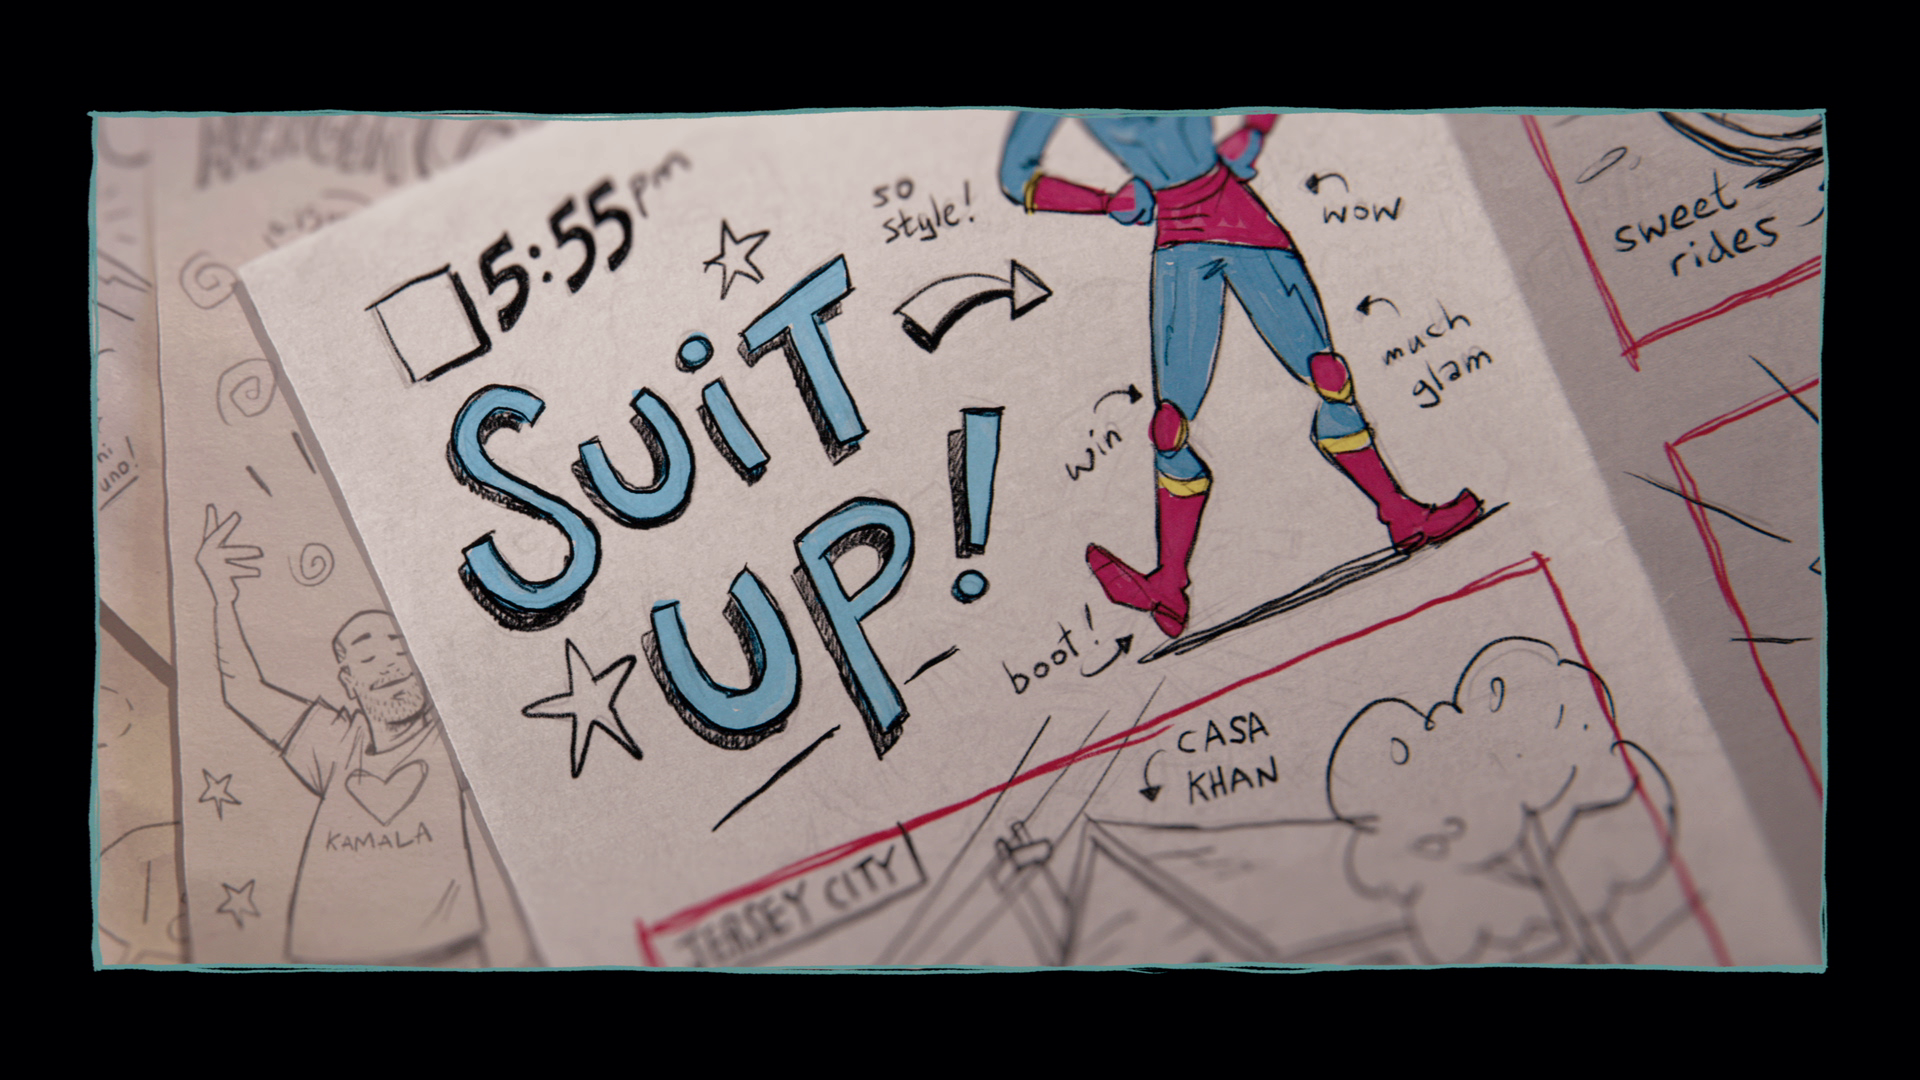 5:55pm
SUiT
UP!
so
style!
wow
much
glam
win
boot!
CASA
KHAN
JERSEY CITY
sweet
rides
KAMALA
uno!